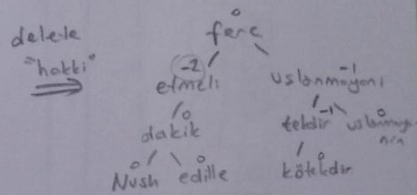 0
delete
"hakki"
ferc
-2
-1
etmeli
uslanmayani
0
-1
0
dakik
tekdir
uslanmaya
nın
0
0
0
Nush
edille
kötekdir